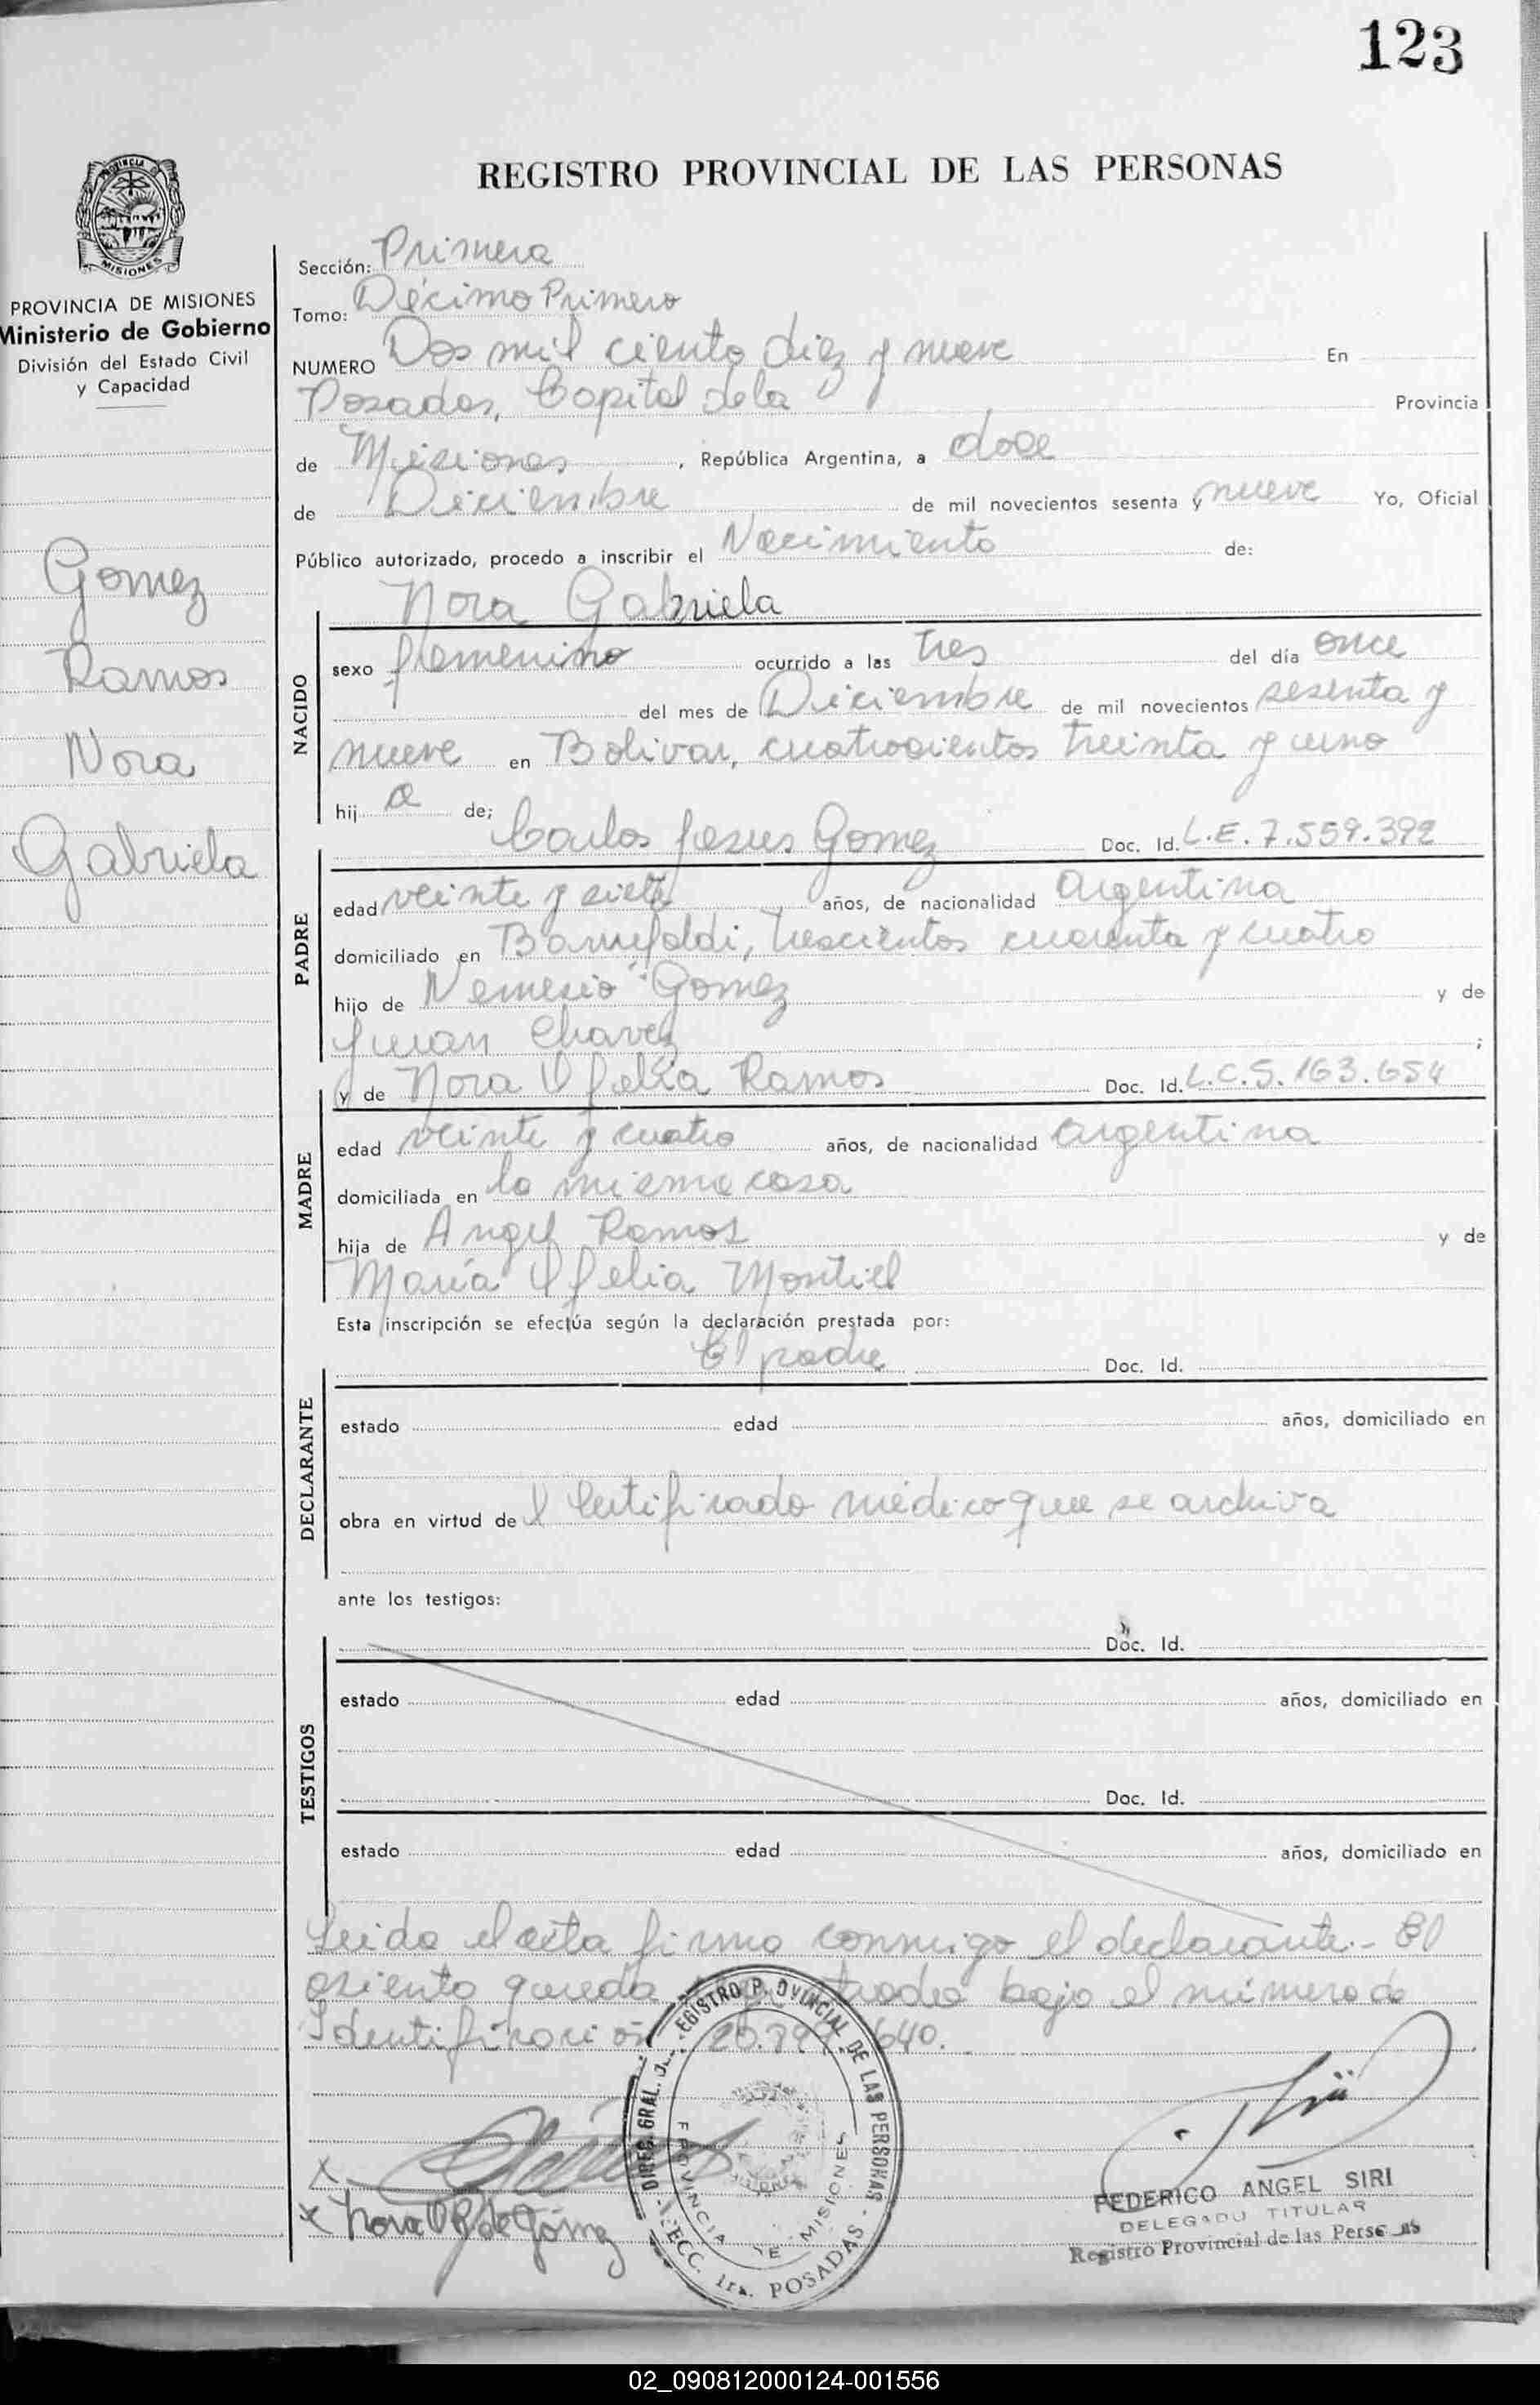 123
REGISTRO PROVINCIAL DE LAS PERSONAS
PROVINCIA DE MISIONES
Ministerio de Gobierno
División del Estado Civil
y Capacidad
Gomez
Ramos
Nora
Gabriela
Sección: Primera
Tomo: Décimo Primero
NUMERO Dos mil ciento diez y nueve En
Posadas, Capital de la Provincia
de Misiones, República Argentina, a doce
de Diciembre de mil novecientos sesenta y nueve Yo, Oficial
Público autorizado, procedo a inscribir el Nacimiento de:
Nora Gabriela
NACIDO
sexo femenino ocurrido a las tres del día once
del mes de Diciembre de mil novecientos sesenta y
nueve en Bolivar, cuatrocientos treinta y uno
hij a de;
Carlos Jesus Gomez Doc. Id. L.E. 7.559.392
PADRE
edad veinte y siete años, de nacionalidad argentina
domiciliado en trescientos cuarenta y cuatro
hijo de Nemesio Gomez y de
Juan Chavez ;
y de Nora Ofelia Ramos Doc. Id. L.C.5.163.654
MADRE
edad veinte y cuatro años, de nacionalidad argentina
domiciliada en la misma casa
hija de Angel Ramos y de
María Ofelia Montiel
Esta inscripción se efectúa según la declaración prestada por:
El padre Doc. Id.
DECLARANTE
estado edad años, domiciliado en
obra en virtud de Certificado médico que se archiva
ante los testigos:
Doc. Id.
TESTIGOS
estado edad años, domiciliado en
Doc. Id.
estado edad años, domiciliado en
Leida el acta firma conmigo el declarante.- El
asiento queda bajo el número de
Identificación 640.
Nora Gómez
DIREC. GRAL. REGISTRO PROVINCIAL DE LAS PERSONAS
PROVINCIA DE MISIONES
SECC. 1ra. POSADAS
FEDERICO ANGEL SIRI
DELEGADO TITULAR
Registro Provincial de las Personas
02_090812000124-001556